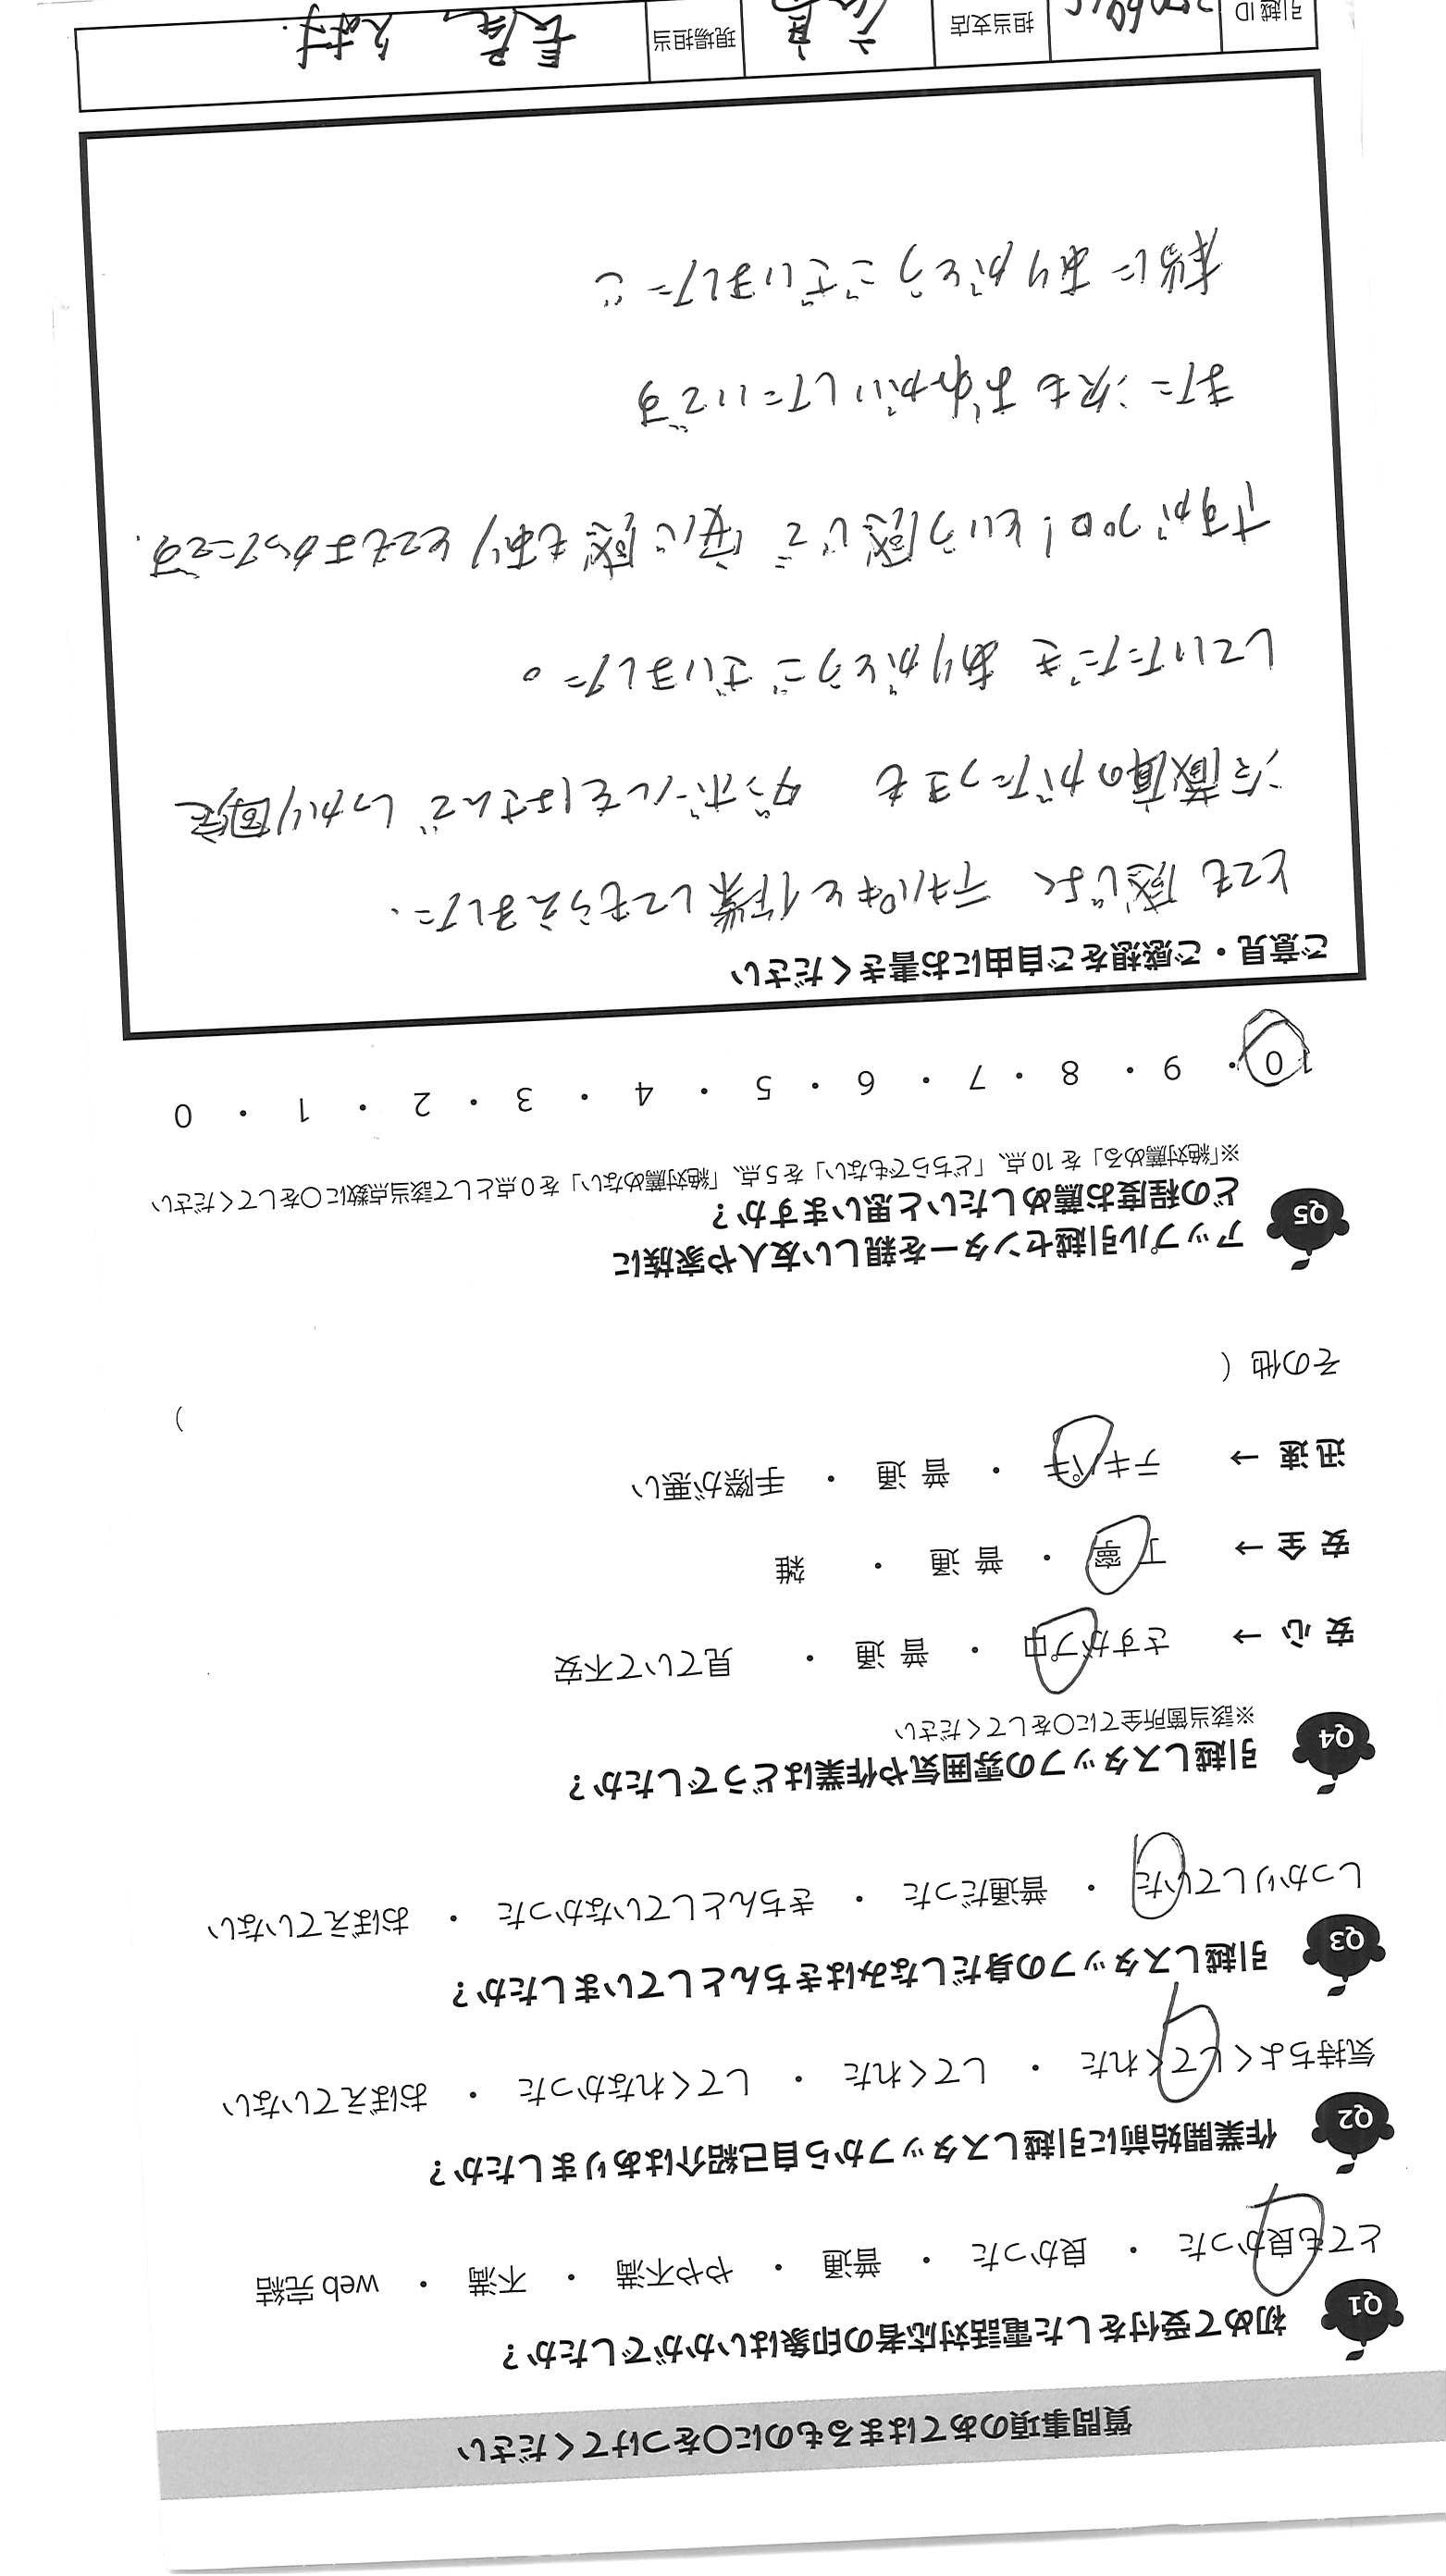 質問事項のあてはまるものに〇をつけてください
Q1 初めて受付をした電話対応者の印象はいかがでしたか？
とても良かった ・ 良かった ・ 普通 ・ やや不満 ・ 不満 ・ web 完結
Q2 作業開始前に引越しスタッフから自己紹介はありましたか？
気持ちよくしてくれた ・ してくれた ・ してくれなかった ・ おぼえていない
Q3 引越しスタッフの身だしなみはきちんとしていましたか？
しっかりしていた ・ 普通だった ・ きちんとしていなかった ・ おぼえていない
Q4 引越しスタッフの雰囲気や作業はどうでしたか？
※該当箇所全てに〇をしてください
安心 → さすがプロ ・ 普通 ・ 見ていて不安
安全 → 丁寧 ・ 普通 ・ 雑
迅速 → テキパキ ・ 普通 ・ 手際が悪い
その他（ ）
Q5 アップル引越センターを親しい友人や家族に
どの程度お薦めしたいと思いますか？
※「絶対薦める」を 10 点、「どちらでもない」を 5 点、「絶対薦めない」を 0 点として該当点数に〇をしてください
10 ・ 9 ・ 8 ・ 7 ・ 6 ・ 5 ・ 4 ・ 3 ・ 2 ・ 1 ・ 0
ご意見・ご感想をご自由にお書きください
とても感じよく テキパキと作業してもらえました.
冷蔵庫のがたつきも ダンボールをはさんで しっかり固定
していただき ありがとうございました。
さすがプロ！という感じで 安心感もあり とてもよかったです.
また次もおねがいしたいです
本当にありがとうございました
引越 ID 担当支店 現場担当 長尾